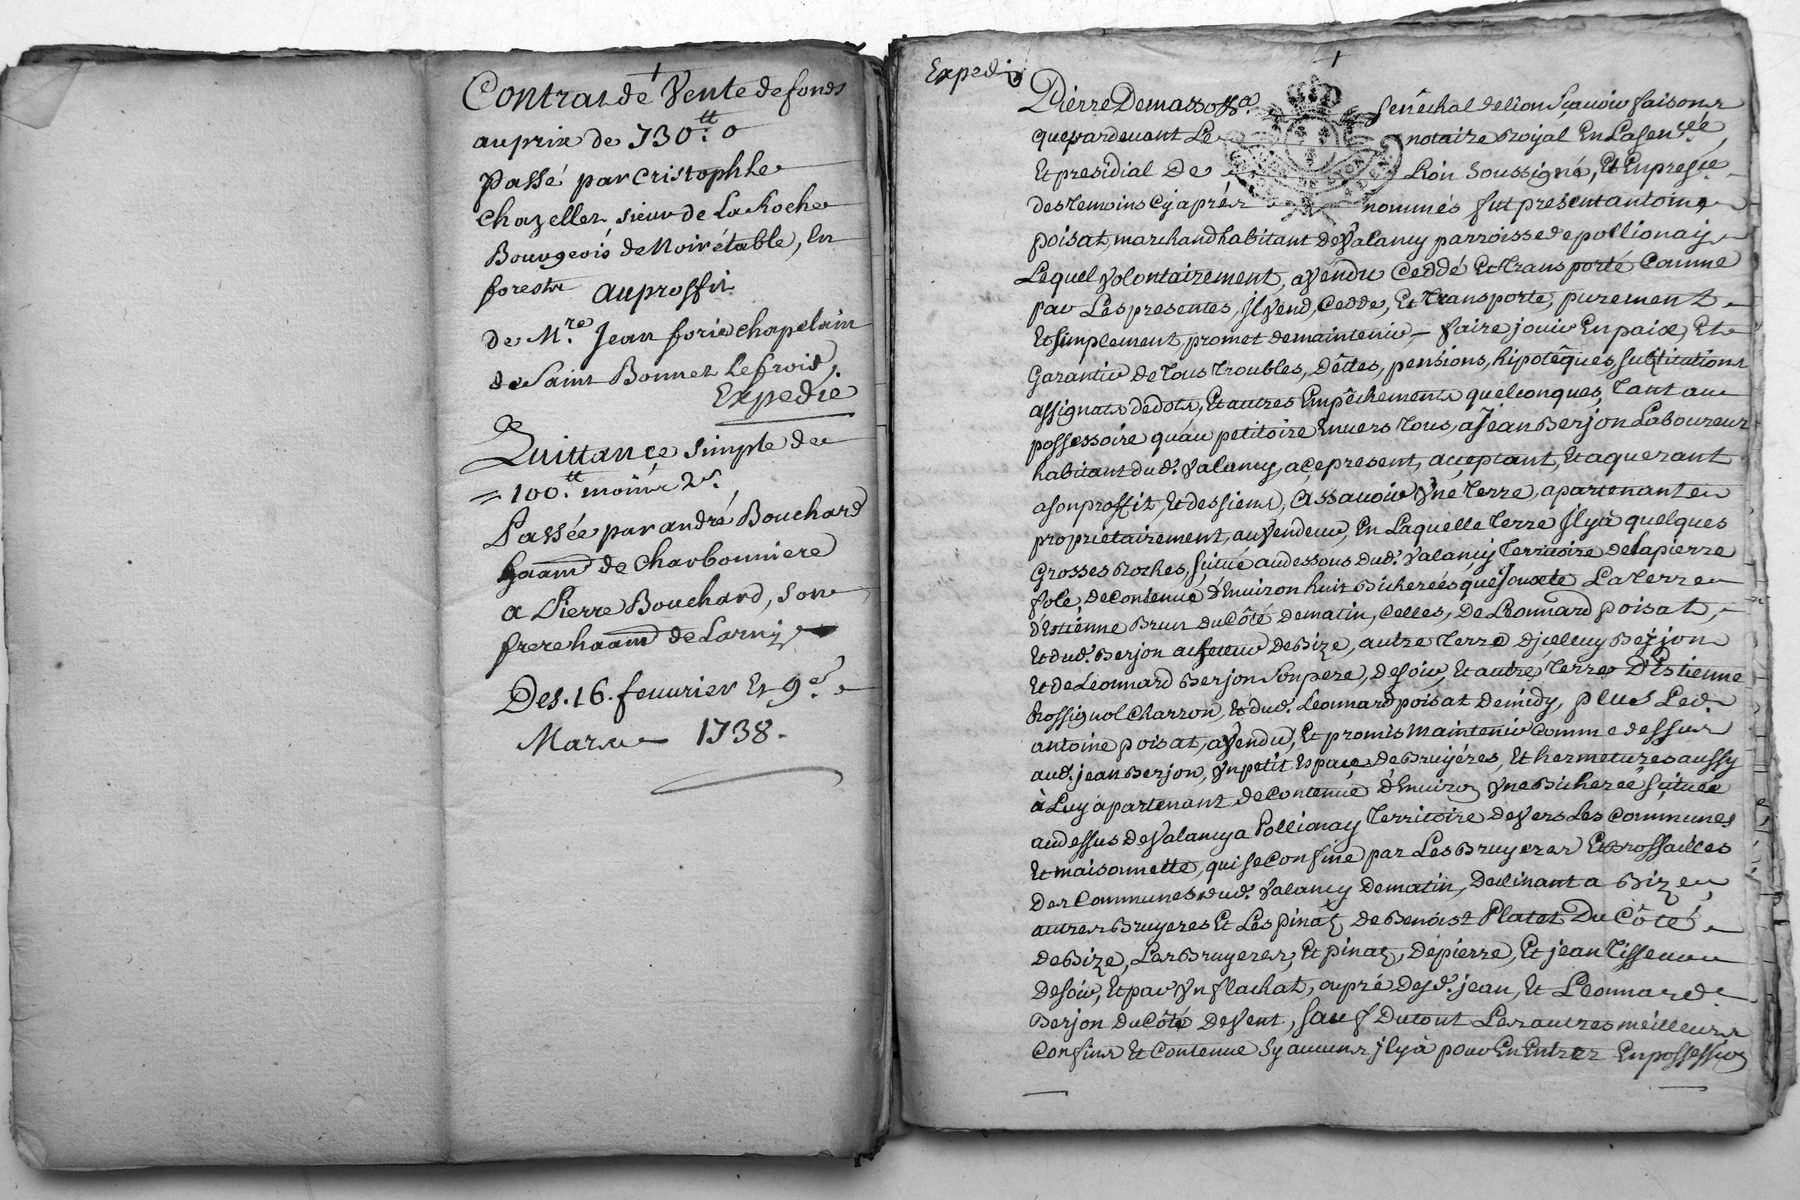 Contrat de Vente de fonds
au prix de 730.tt 0
Passé par Cristophle
Chazelles, sieur de La Roche
Bourgeois de Noirétable, En
forestz au proffit
de M.re Jean forié chapelain
de Saint Bonnet Le froid,
Expedié
Quittance simple de
= 100.tt moins 2 s.
Passée par andré Bouchard
de Charbonniere
a Pierre Bouchard, son
frere de Larny
Des. 16. feuurier Et 9.e
Mars 1738.
Expedié
Pierre Demasso Seneĉhal de lion Sçauoir faisons
que pardeuant Le notaire Royal En La Sen.cée
Et presidial de Lion Soussigné, Et En presĉe
des temoins cy aprés nommés fut present antoine
poisat, marchand habitant de Valancy parroisse de pollionay
Lequel Volontairement, a Vendu Ceddé Et Transporté Comme
par Les presentes, Il Vend, Cedde, Et Transporte, purement
Et Simplement promet de maintenir, – faire jouir En paix, Et
Garantir de Tous Troubles, Dêttes, pensions, hipotêques, Substitutions
assignats dedots, Et autres Empêchements quelconques, Tant au
possessoire qu'au petitoire Enuers Tous, a Jean Berjon Laboureur
habitant dud. Valancy, a ce present, acceptant, Et aquerant
a son proffit, Et des siens, Assauoir Vne Terre, apartenant
proprietairement, au Vendeur, En Laquelle Terre Il y à quelques
Grosses Roches, Situé audessous dud. Valancy Territoire de la pierre
fole, de contenue d'Enuiron huit Bicherées que Jouxte La Terre
d'Estienne Brun du Côté de matin, Celles, De Leonnard poisat,
Et dud. Berjon de Bize, autre Terre Berjon
Et de Leonnard Berjon Son pere, de soir, Et autre Terre D'Estienne
Rossignol Charron, Et dud. Leonnard poisat de midy, plus Led.
antoine poisat, a Vendu, Et promis Maintenir Comme dessus
aud. jean Berjon, Vn petit Espace de Bruyéres, Et hermetures aussy
à Luy apartenant de contenue d'Enuiron Vne Bicherée Situeé
au dessus de Valancy a Pollionay Territoire de Vers Les Communes
Et maisonnette, qui se Confine par Les Bruyeres Et Brossailles
Des Communes dud. Valancy de matin, Declinant a Bize,
autres Bruyeres Et Les pinaŷ, de Benoist Platet Du Côté
de Bize, Les Bruyeres, Et pinaŷ, de pierre, Et jean Tisseur
de soir, Et par Vn flachat, Jean, Et Leonnard
Berjon du Côté de Vent, Sauf Du tout Les autres meilleurs
Confins Et Contenue Sy aucuns Il y à pour En Entrer En possession